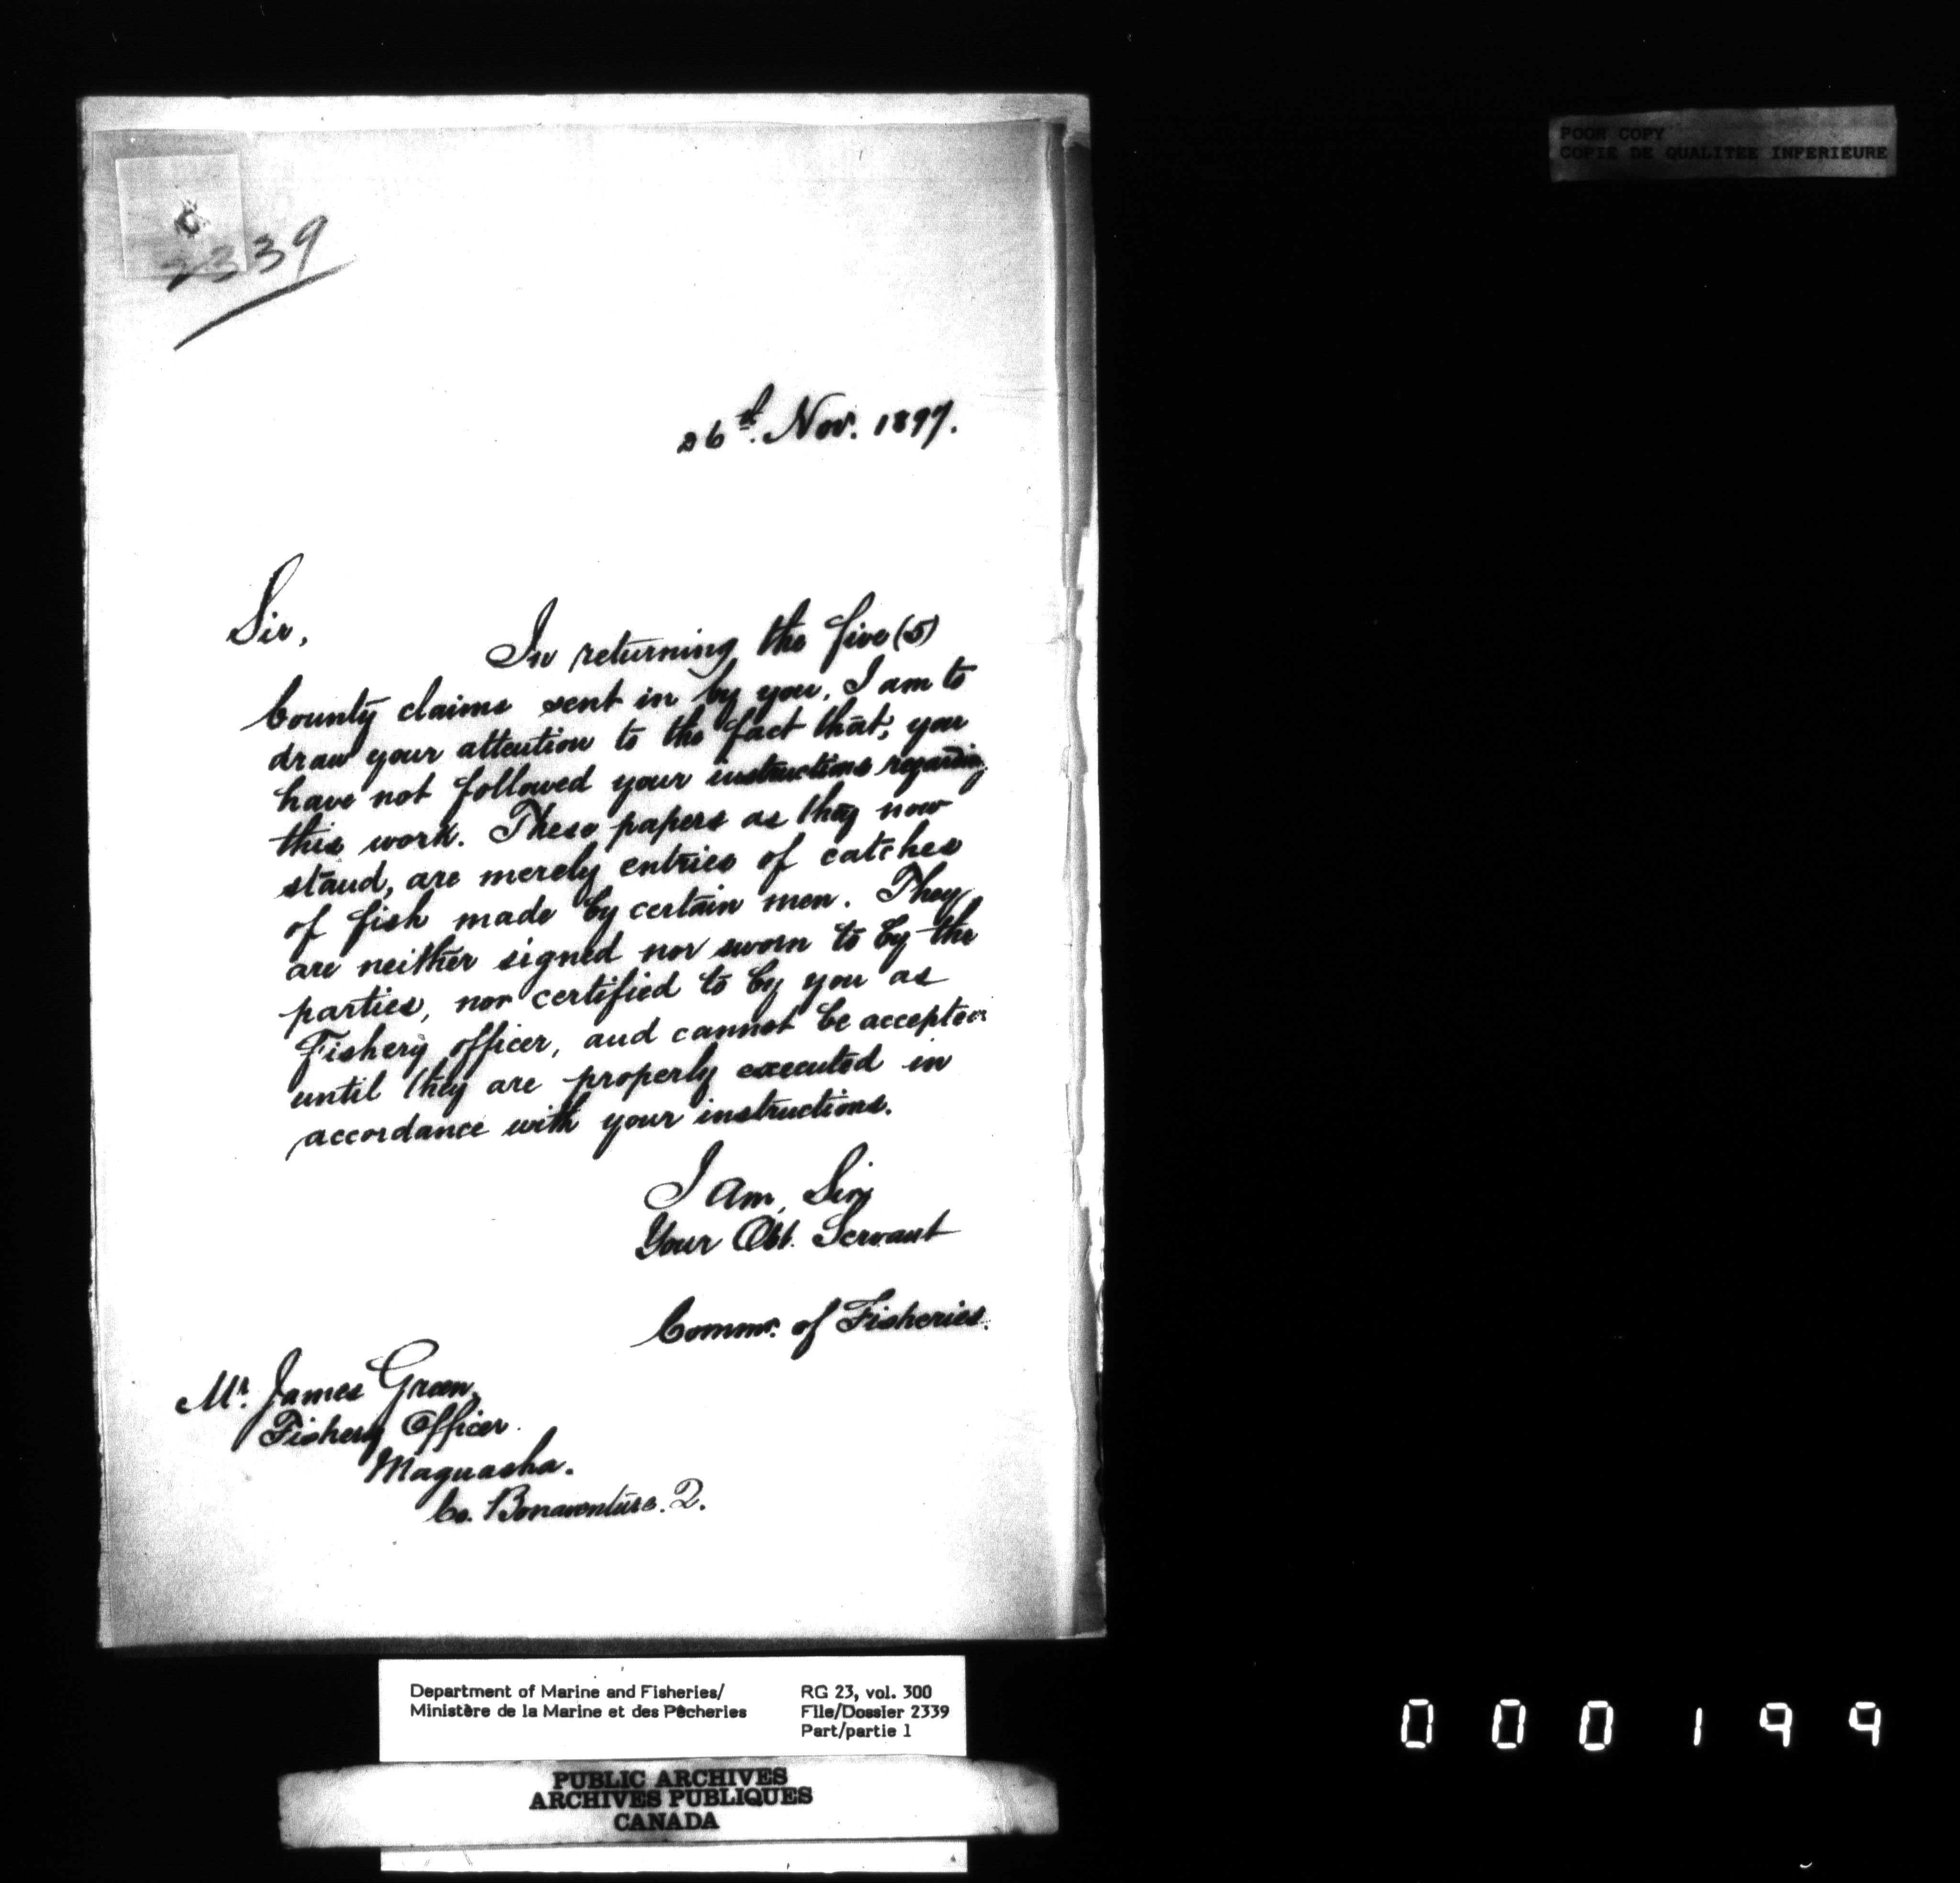 POOR COPY
COPIE DE QUALITEE INFERIEURE
2339
26th. Nov. 1897.
Sir,
In returning the five (5)
bounty claims sent in by you, I am to
draw your attention to the fact that, you
have not followed your instructions regarding
this work. These papers as they now
stand, are merely entries of catches
of fish made by certain men. They
are neither signed nor sworn to by the
parties, nor certified to by you as
Fishery officer, and cannot be accepted
until they are properly executed in
accordance with your instructions.
I am, Sir,
Your Obt. Servant
Commr. of Fisheries.
Mr. James Green,
Fishery Officer.
Maguasha.
Co. Bonaventure. Q.
Department of Marine and Fisheries/
Ministère de la Marine et des Pêcheries
RG 23, vol. 300
File/Dossier 2339
Part/partie 1
PUBLIC ARCHIVES
ARCHIVES PUBLIQUES
CANADA
000199